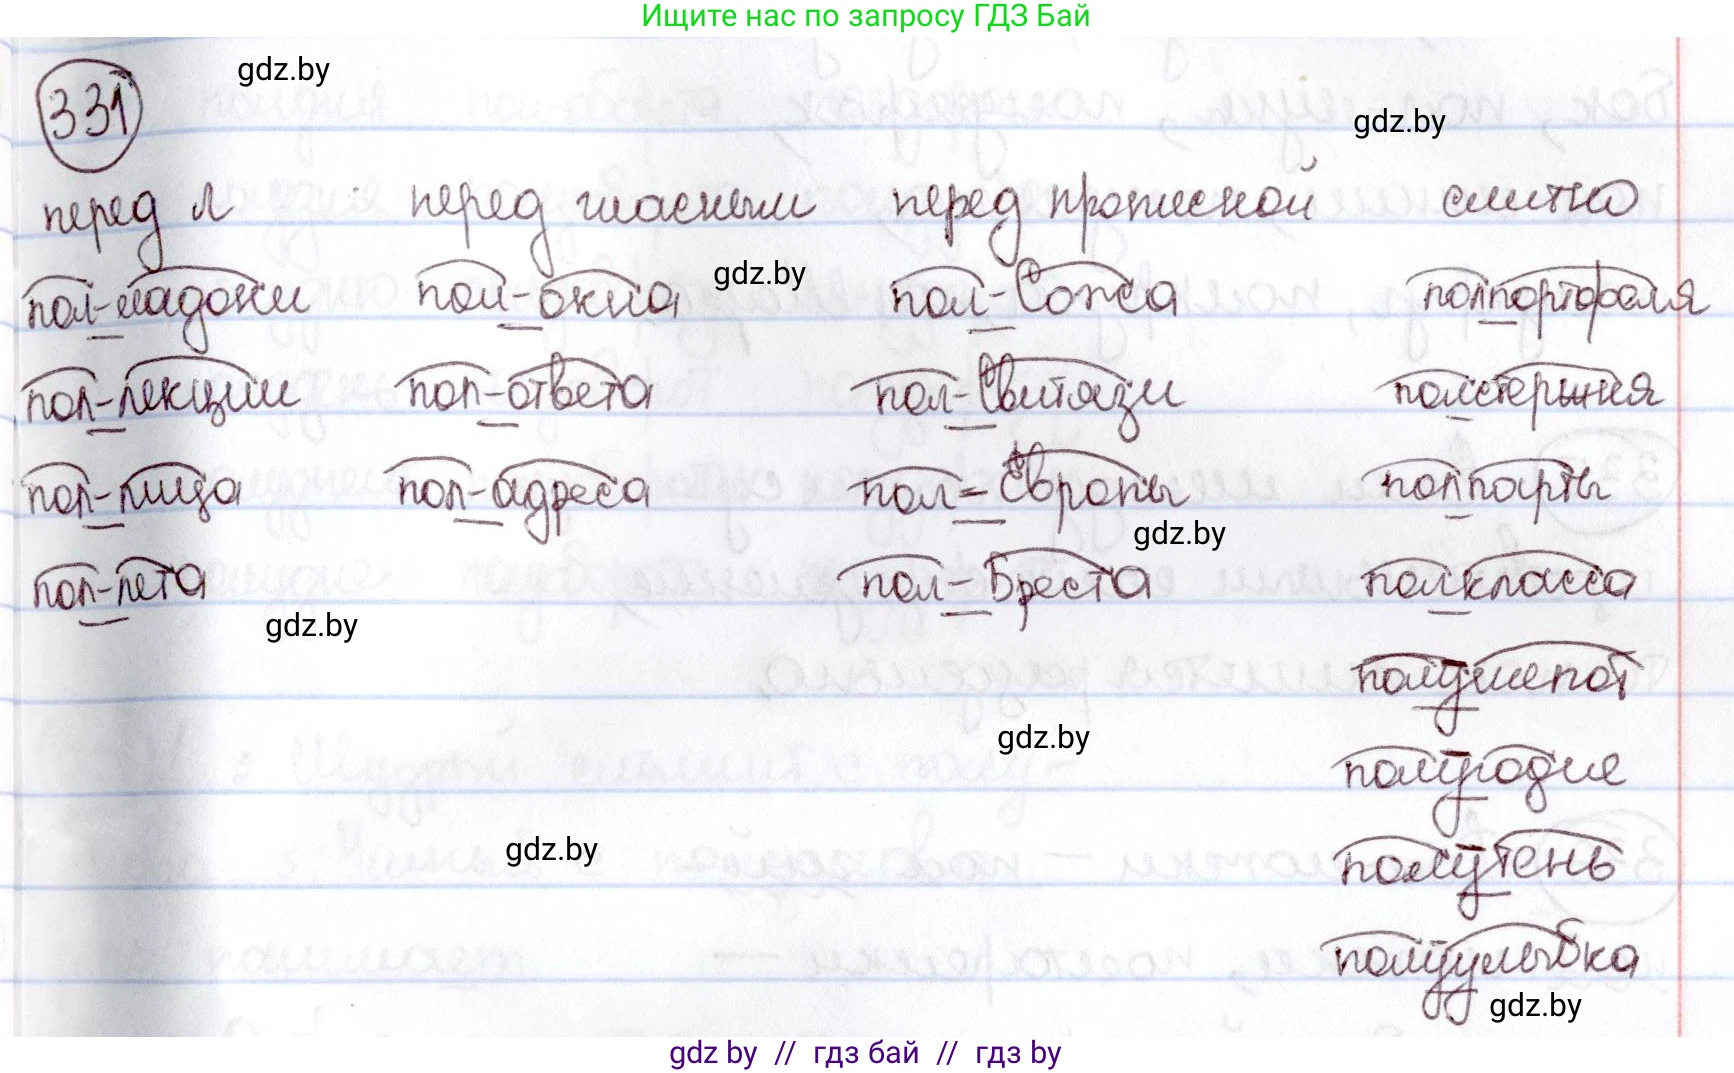 Ищите нас по запросу ГДЗ Бай
331
gdz.by
gdz.by
перед л перед гласным перед прописной слитно
gdz.by
пол-ладони пол-окна пол-Сожа полпортфеля
пол-лекции пол-ответа пол-Свитязи полстержня
пол-лица пол-адреса пол-Европы полпарты
gdz.by
пол-лета пол-Бреста полкласса
gdz.by
полушепот
gdz.by
полугодие
gdz.by
полутень
полуулыбка
gdz.by
gdz by // гдз бай // гдз by